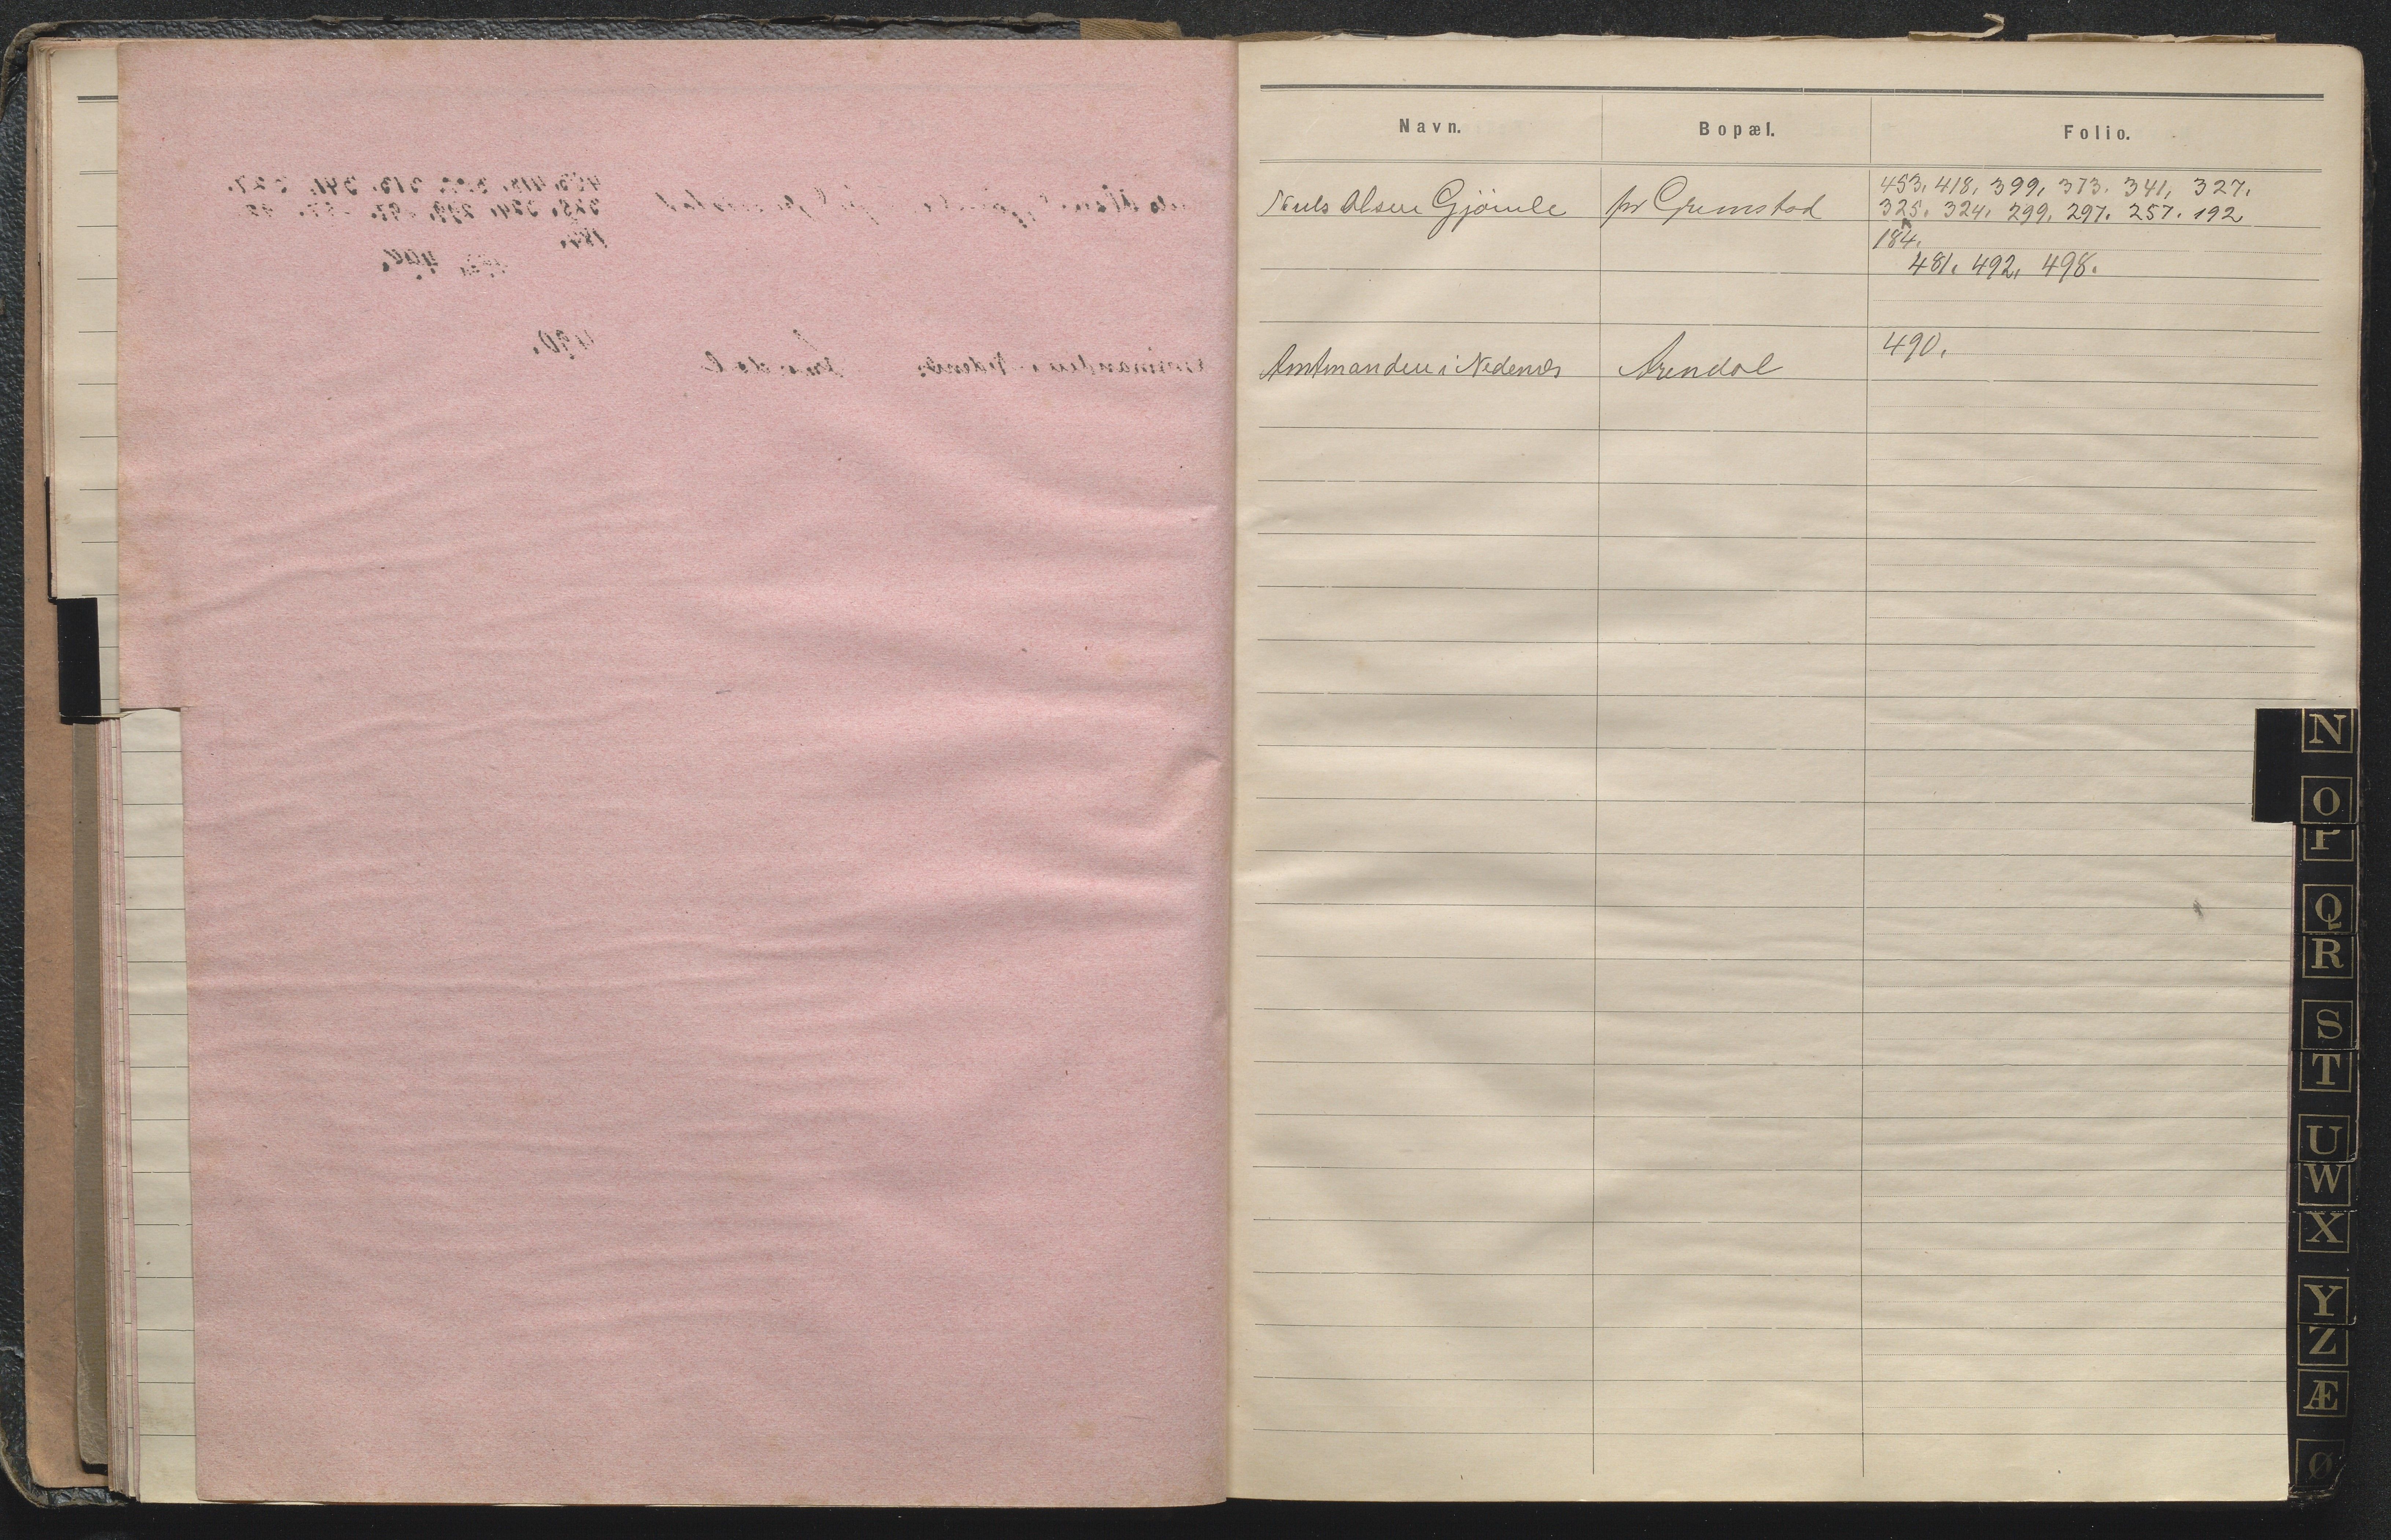 Navn. Bopæl. Folio.
453. 418. 399. 373. 341. 327.
Niels Olsen Gjömle pr Grimstad 325. 324. 299. 297. 257. 192
184.
481. 492. 498.
490.
Amtmanden i Nedenes Arendal
N
O
P
Q
R
S
T
U
W
X
Y
Z
Æ
Ø